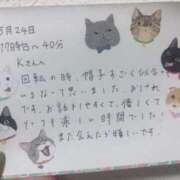 5月24日
17時台〜40分
Kさんへ
回転の時、帽子すごく似合
いるなって思いました。おれ
です。お話しやすくて、優しくて
とても楽しい時間でした!
また会えたら嬉しいです。